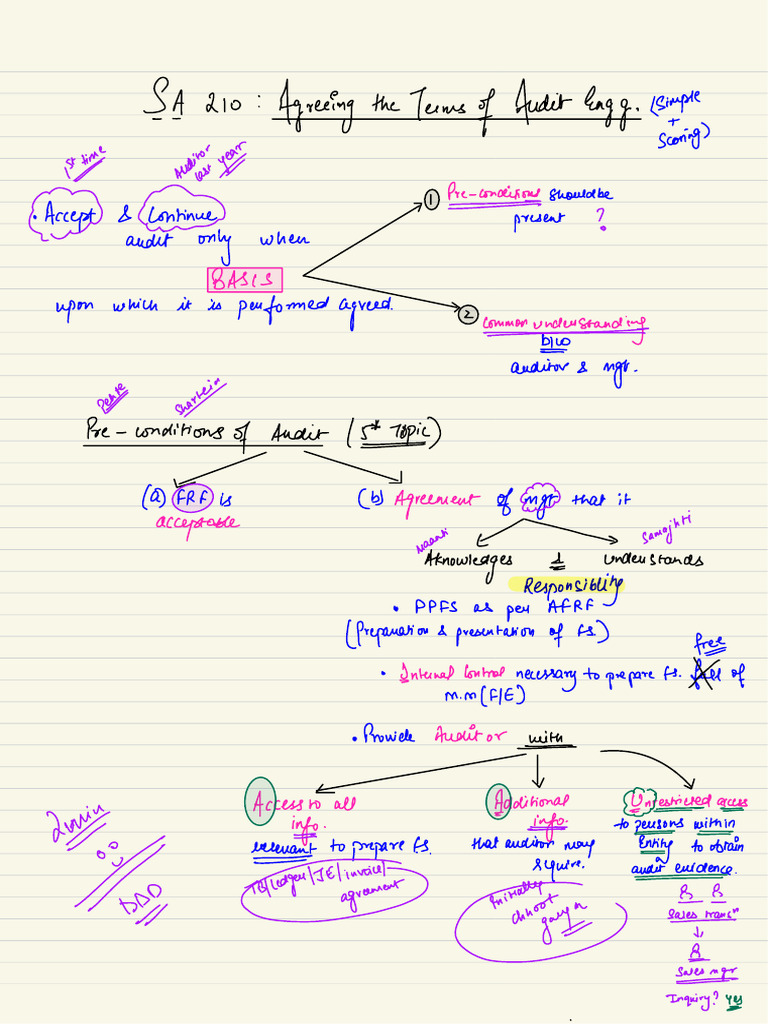 SA 210 : Agreeing the Terms of Audit Engg.
(Simple
+
Scoring)
1st time
Auditor
last year
• Accept & Continue
audit only when
BASIS
upon which it is performed agreed.
① Pre-conditions should be
present ?
② Common understanding
b/w
auditor & mgt.
Pehle
Shartein
Pre-conditions of Audit (5* Topic)
(a) FRF is
acceptable
(b) Agreement of mgt that it
Maanti
Samajhti
Aknowledges & understands
Responsiblity
• PPFS as per AFRF
(Preparation & presentation of FS)
free
• Internal Control necessary to prepare FS. full of
m.m (F/E)
• Provide Auditor with
Access to all
info.
relevant to prepare FS.
TB/ledger/JE/invoice/
agreement
Additional
info.
that auditor may
require.
Initially
chhoot
gaya
Unrestricted access
to persons within
Entity to obtain
audit evidence.
Sales transn
↓
Sales mgr
Inquiry? Yes
2min
DDD